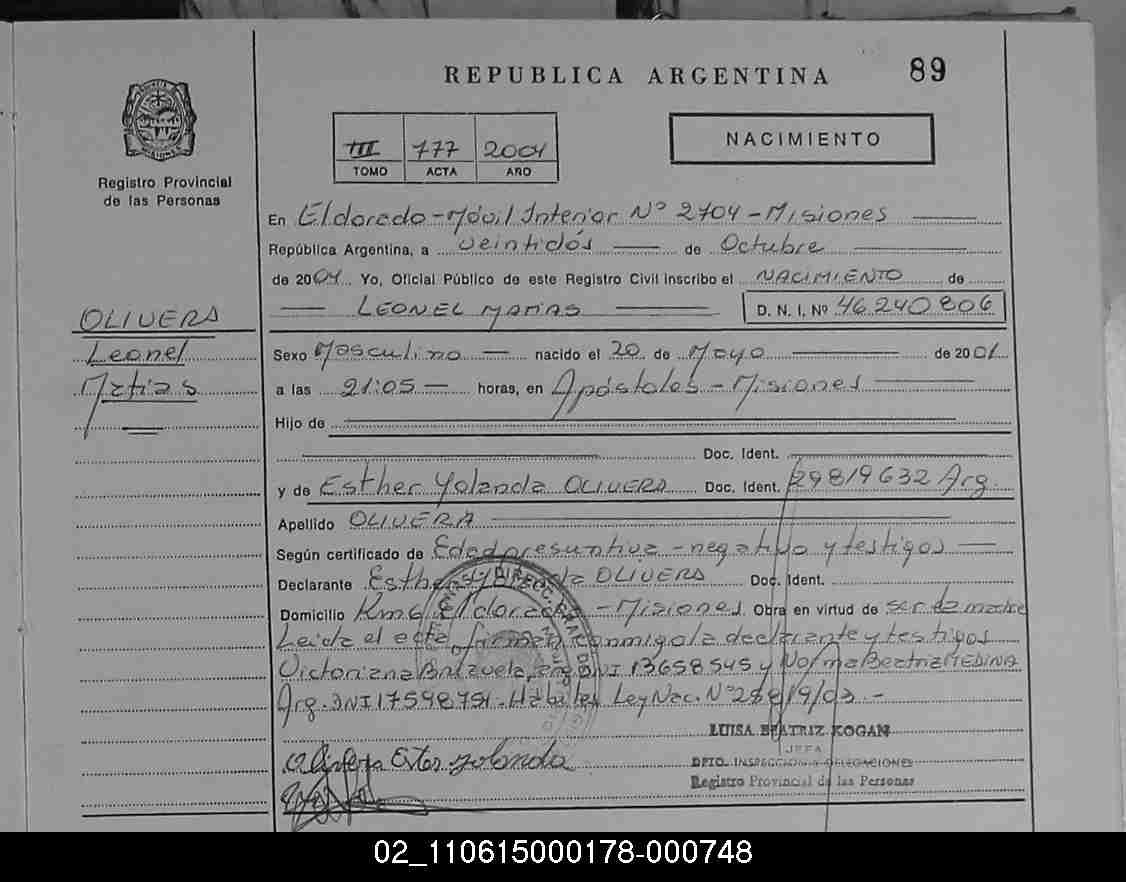 REPUBLICA ARGENTINA
89
Registro Provincial
de las Personas
III 777 2004
TOMO ACTA AÑO
NACIMIENTO
En Eldorado - Móvil Interior Nº 2704 - Misiones
República Argentina, a veintidós de Octubre
de 2004. Yo, Oficial Público de este Registro Civil inscribo el NACIMIENTO de
LEONEL MATIAS D. N. I. Nº 46.240.806
OLIVERA
Leonel
Matias
Sexo Masculino nacido el 20 de Mayo de 2001
a las 21:05 horas, en Apóstoles - Misiones
Hijo de
Doc. Ident.
y de Esther Yolanda OLIVERA Doc. Ident. 29819632 Arg.
Apellido OLIVERA
Según certificado de Edad presuntiva - negativo y testigos
Declarante Esther OLIVERA Doc. Ident.
Domicilio Km 6 Eldorado - Misiones Obra en virtud de ser la madre
Leida el acta, firman conmigo la declarante y testigos
Victoriana DNI 13658545 y Norma Beatriz MEDINA
Arg. DNI 17548751 - Ley Nac. Nº
LUISA BEATRIZ KOGAN
JEFA
DPTO. INSPECCION Y DELEGACIONES
Registro Provincial de las Personas
Olivera Ester yolanda
02_110615000178-000748